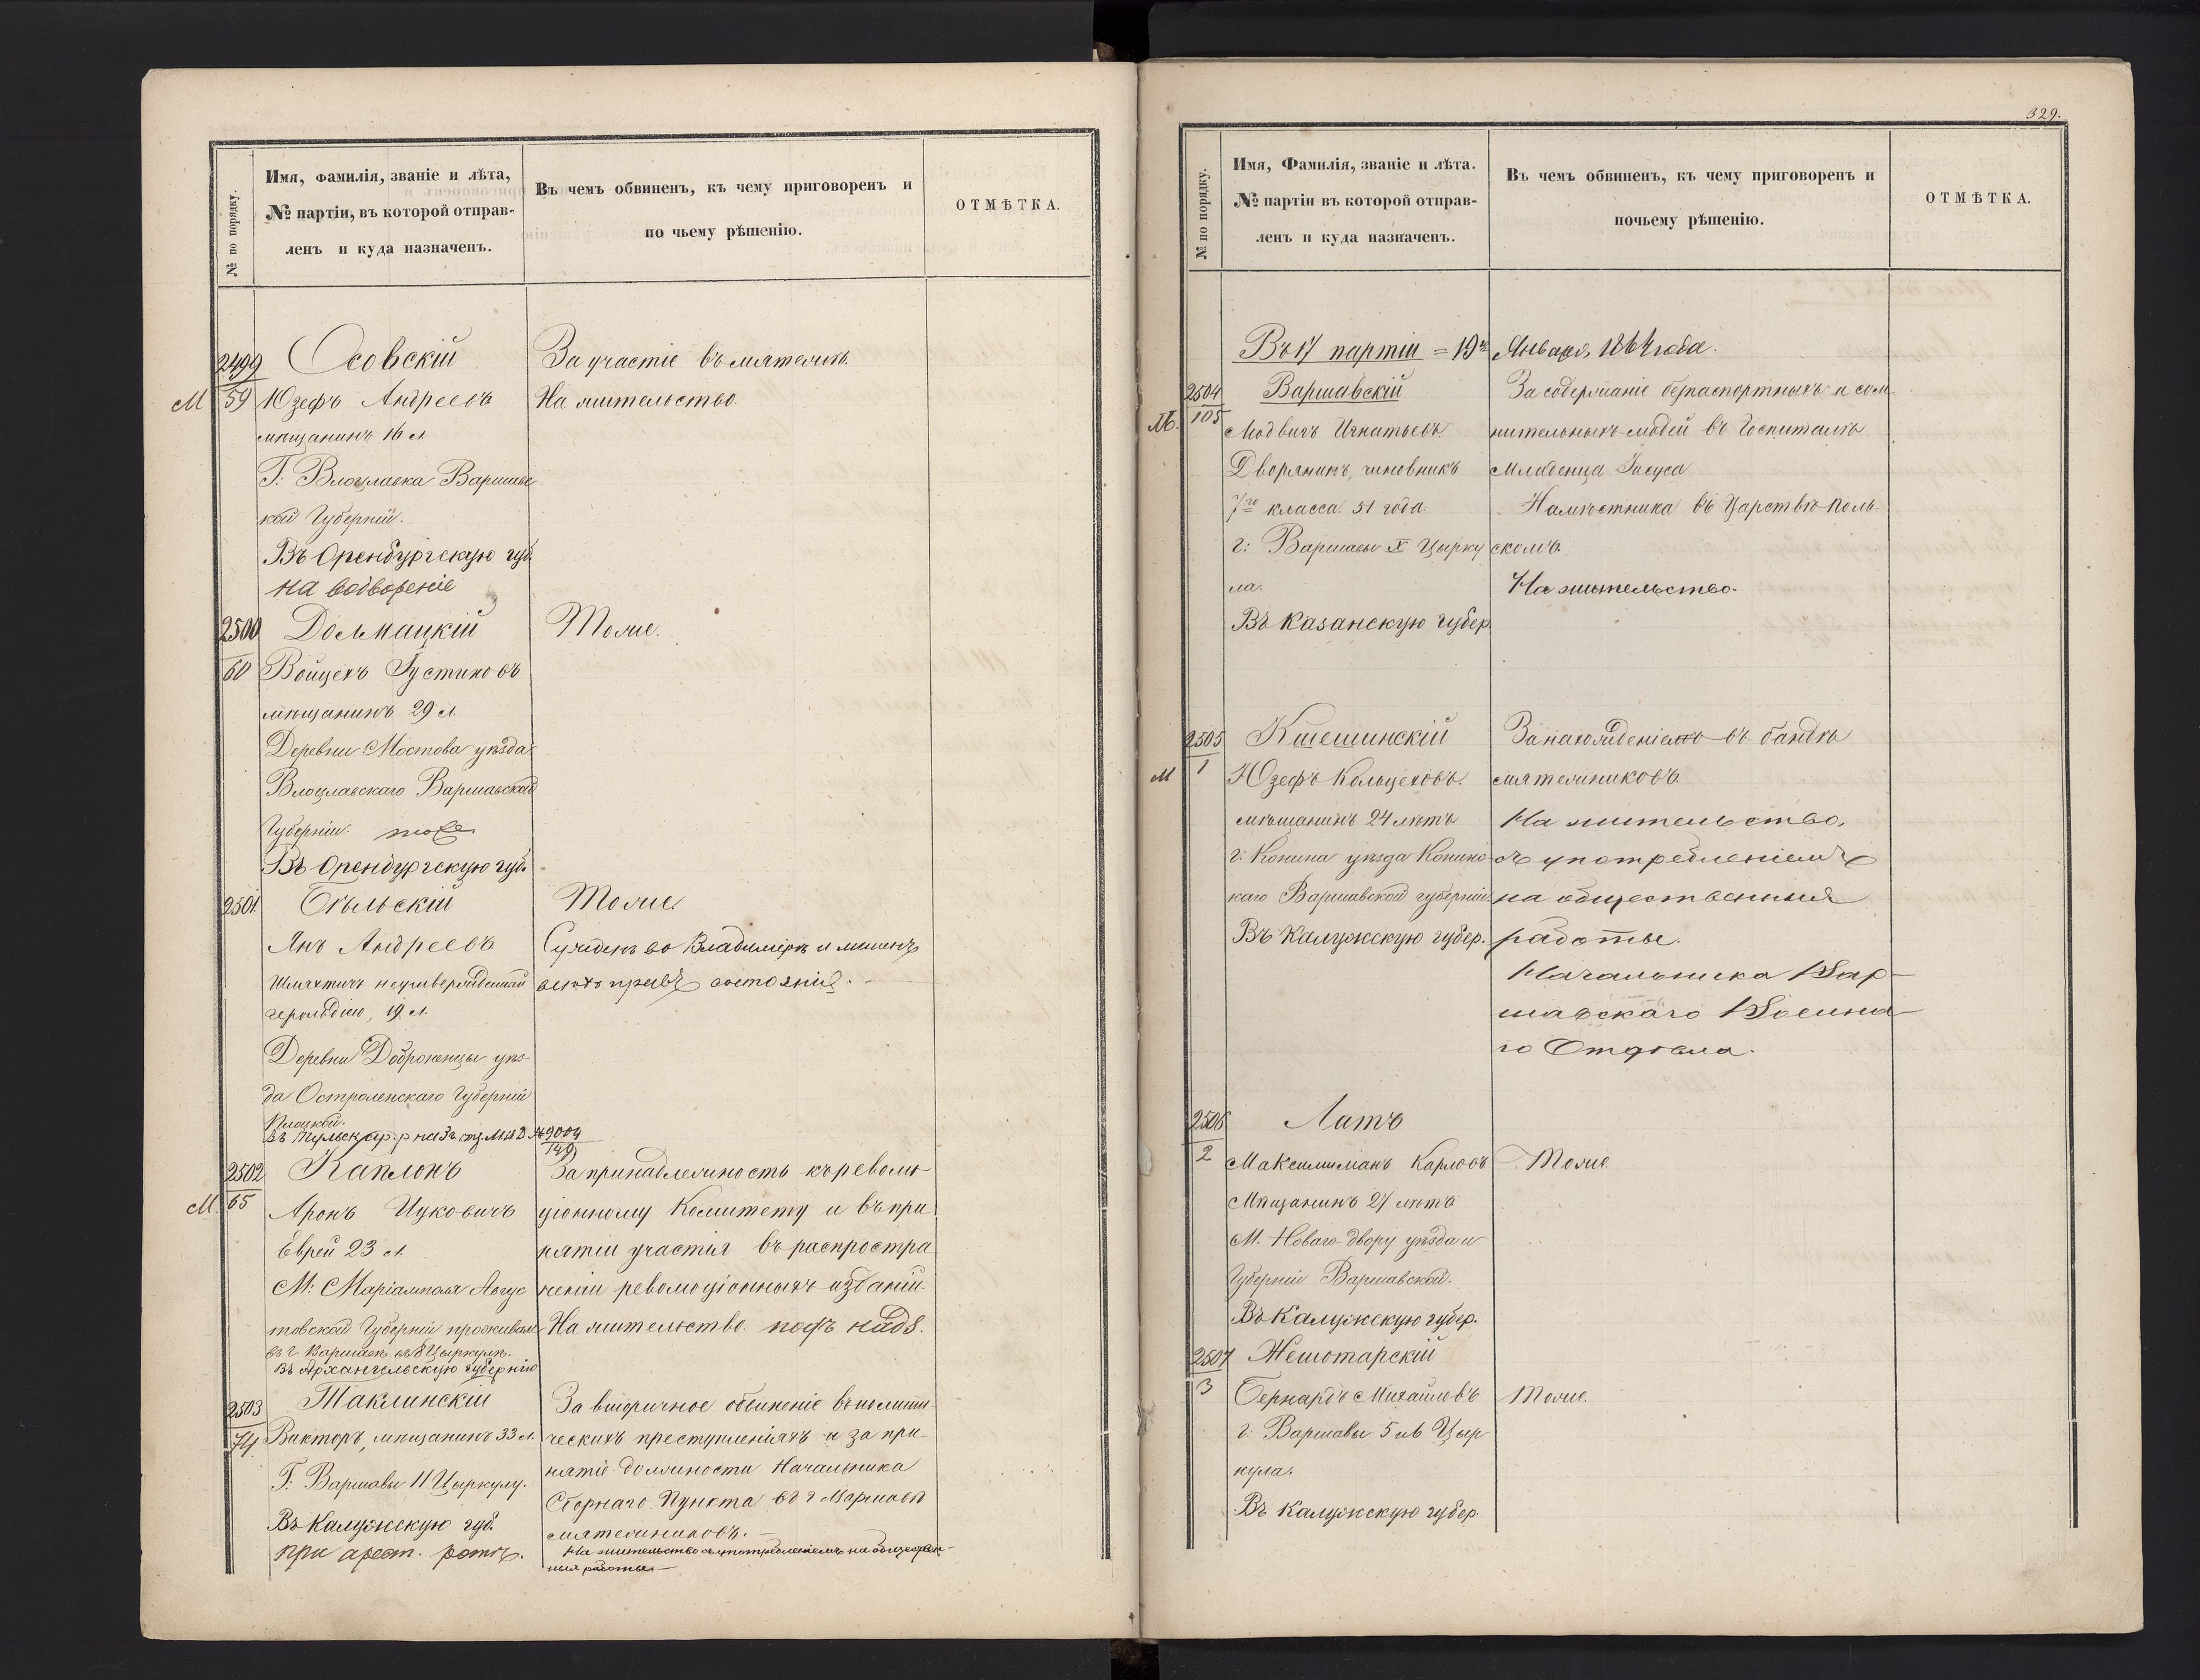 № по порядку.
Имя, фамилія, званіе и лѣта,
№ партіи, въ которой отправ-
ленъ и куда назначенъ.
Въ чемъ обвиненъ, къ чему приговоренъ и
по чьему рѣшенію.
ОТМѢТКА.
2499
Осовскій
За участіе въ мятежѣ.
М
59
Юзефъ Андреевъ
На жительство.
мѣщанинъ 16 л.
Г: Влоцлавка Варшавс
кой Губерніи.
Въ Оренбургскую губ.
на водвореніе
2500
Долмацкій
Тоже.
60
Войцехъ Густиновъ
мѣщанинъ 29 л.
Деревни Мостова уѣзда
Влоцлавскаго Варшавской
Губерніи. тоже
Въ Оренбургскую губ.
2501
Бѣльскій
Тоже.
Янъ Андреевъ
Сужденъ во Владимірѣ и лишенъ
Шляхтичъ неутвержденный
всѣхъ правъ состоянія.
герольдіею, 19 л.
Деревни Доброженцы уѣз-
да Остроленскаго Губерніи
Плоцкой.
2502
Каплонъ
За принадлежность къ револю
М.
65
Аронъ Ицковичъ
ціонному Комитету и въ при
Еврей 23 л.
нятіи участія въ распростра
М: Маріамполя Авгус
неніи революціонныхъ изданій.
товской Губерніи проживал.
На жительство. подъ надз.
въ г. Варшавѣ въ 8 Цыркулѣ.
Въ Архангельскую губернію
2503
Таклинскій
За вторичное обвиненіе въ полити-
74.
Викторъ, мѣщанинъ 33 л.
ческихъ преступленіяхъ и за при
Г: Варшавы 11 Цыркулу.
нятіе должности Начальника
Сборнаго Пункта въ г Варшавѣ
Въ Калужскую губ.
мятежниковъ.
при арест. ротѣ.
На жительство съ употребленіемъ на обществен-
ныя работы
329.
№ по порядку.
Имя, Фамилія, званіе и лѣта.
№ партіи въ которой отправ-
ленъ и куда назначенъ.
Въ чемъ обвиненъ, къ чему приговоренъ и
почьему рѣшенію.
ОТМѢТКА.
Въ 17 партіи = 19го Января, 1864 года.
2504
Варшавскій
За содержаніе безпаспортныхъ и сом
М.
105
Людвигъ Игнатьевъ.
нительныхъ людей въ Госпиталѣ
Дворянинъ, чиновникъ
Младенца Іисуса
7го класса. 51 года.
Намѣстника въ Царствѣ Поль-
г: Варшавы X Цырку
скомъ.
ла.
На жительство.
Въ Казанскую губер
2505
Кшешинскій
За нахожденіемъ въ бандѣ
М
1
Юзефъ Кольцеховъ.
мятежниковъ.
мѣщанинъ 24 лѣтъ
На жительство,
г: Конина уѣзда Конинс
съ употребленіемъ
каго Варшавской губерніи.
на общественныя
Въ Калужскую губер.
работы.
Начальника Вар-
шавскаго Военна-
го Отдѣла.
2506
Латъ
2
Максимиліанъ Карловъ
Тоже.
Мѣщанинъ 27 лѣтъ
М. Новаго двору уѣзда и
Губерніи Варшавской.
Въ Калужскую губер.
2507
Нешотарскій
3
Бернардъ Михайловъ
Тоже.
г: Варшавы 5 и 6 Цыр
кула.
Въ Калужскую губер.